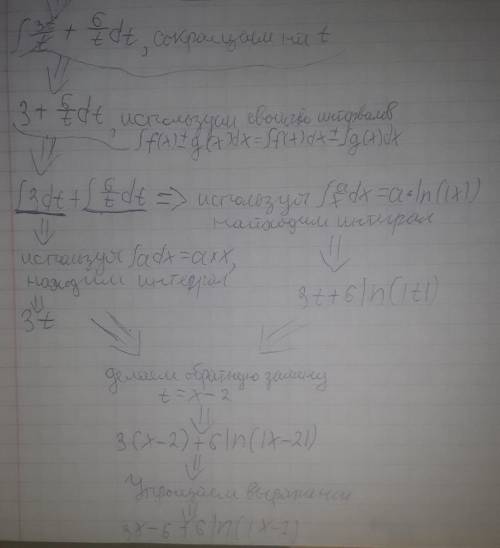 ∫ 3t/t + 6/t dt, сокращаем на t
3 + 6/t dt, используем свойство интегралов
∫f(x)±g(x)dx=∫f(x)dx±∫g(x)dx
∫3dt+∫6/t dt => используя ∫a/x dx=a*ln(|x|)
находим интеграл
используя ∫adx=a×x,
находим интеграл
3t+6ln(|t|)
3t
делаем обратную замену
t=x-2
3(x-2)+6ln(|x-2|)
Упрощаем выражение
3x-6+6ln(|x-2|)